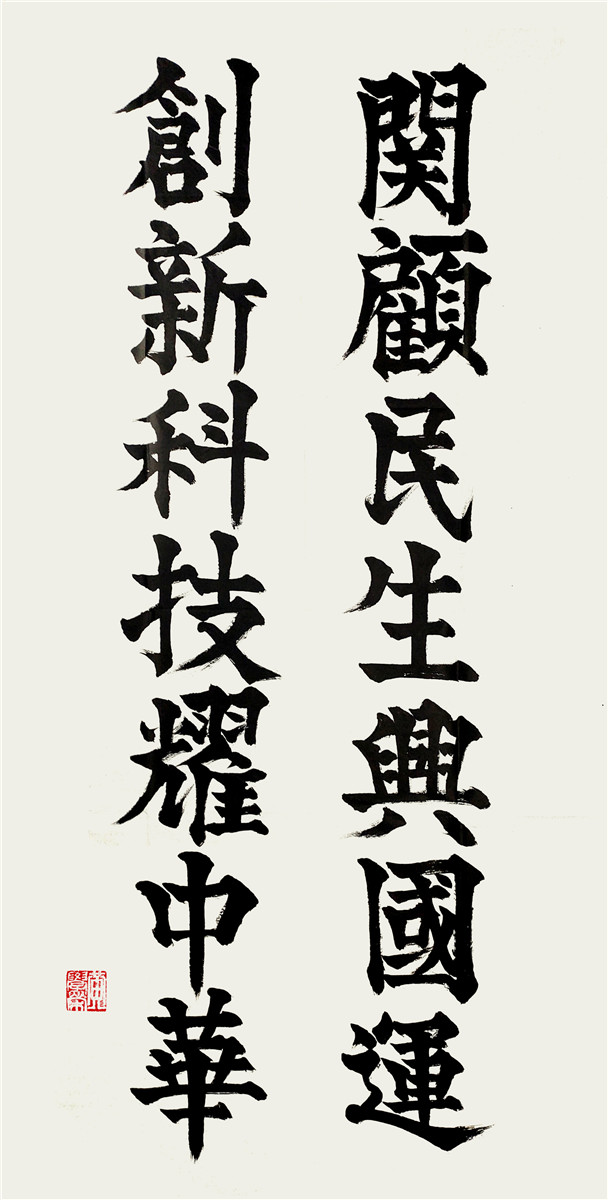 関顧民生興國運
創新科技耀中華